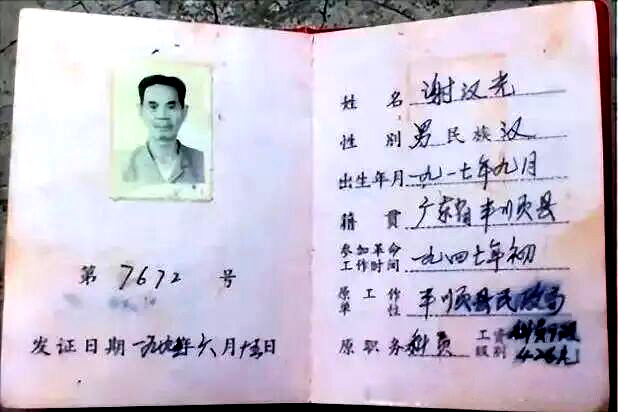 第 7672 号
发证日期 一九九五年六月十五日
姓名 谢汉光
性别 男 民族 汉
出生年月 一九一七年九月
籍贯 广东省丰顺县
参加革命工作时间 一九四七年初
原工作单位 丰顺县民政局
原职务 科员 工资级别